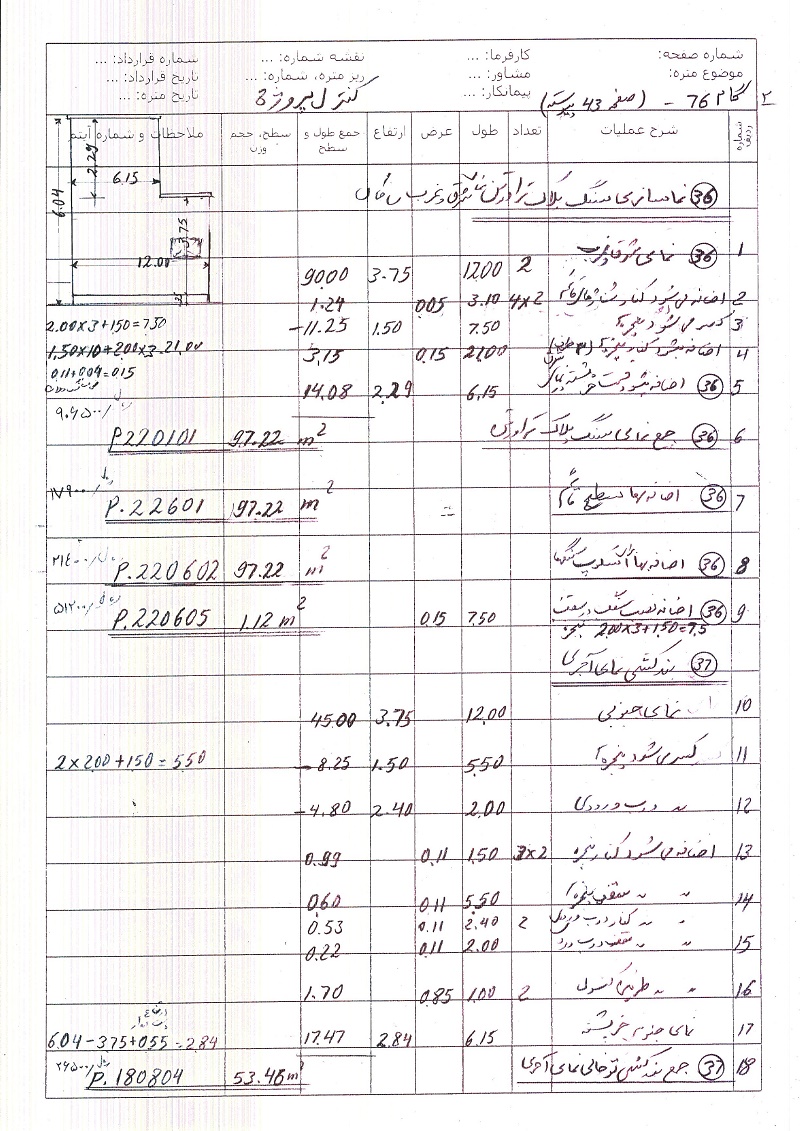 شماره صفحه:
کارفرما: ...
نقشه شماره: ...
شماره قرارداد: ...
موضوع متره:
مشاور: ...
ریز متره، شماره: ...
تاریخ قرارداد: ...
پیمانکار: ...
تاریخ متره: ...
۲ گام 76 - (صفحه 43 پیوسته) کنترل پروژه
شماره ردیف
شرح عملیات
تعداد
طول
عرض
ارتفاع
جمع طول و سطح
سطح، حجم وزن
ملاحظات و شماره آیتم
2.29
6.15
6.04
3.75
12.00
36 نماسازی با سنگ پلاک تراورتن
1 36 نمای شرق و غرب 2 12.00 3.75 90.00
2 اضافه می شود کنار 4×2 3.10 0.05 1.24
3 کسر می شود پنجره 7.50 1.50 -11.25 2.00×3+150=7.50
4 اضافه میشود کنار پنجره 21.00 0.15 3.15 1.50×10+2.00×3=21.00
0.11+0.04=0.15
5 36 اضافه میشود قسمت خرپشته 6.15 2.29 14.08
6 36 جمع نمای سنگ پلاک تراورتن m² 97.22 P220101
7 36 اضافه بها m² 97.22 P.22601
8 36 اضافه بها m² 97.22 P.220602
9 36 اضافه نصب سنگ در سقف 7.50 0.15 1.12 m² P.220605
پنجره 2.00×3+150=7.5
37 بندکشی نمای آجری
10 نمای جنوبی 12.00 3.75 45.00
11 کسر می شود پنجره 5.50 1.50 -8.25 2×2.00+1.50=5.50
12 〃 درب ورودی 2.00 2.40 -4.80
13 اضافه می شود کنار پنجره 3×2 1.50 0.11 0.99
14 〃 〃 سقف پنجره 5.50 0.11 0.60
〃 〃 کنار درب ورودی 2 2.40 0.11 0.53
15 〃 〃 سقف درب ورودی 2.00 0.11 0.22
16 〃 〃 طرفین کنسول 2 1.00 0.85 1.70
17 نمای جنوبی خرپشته 6.15 2.84 17.47 6.04-3.75+0.55=2.84
18 37 جمع بندکشی توخالی نمای آجری 53.46 m² P.180804